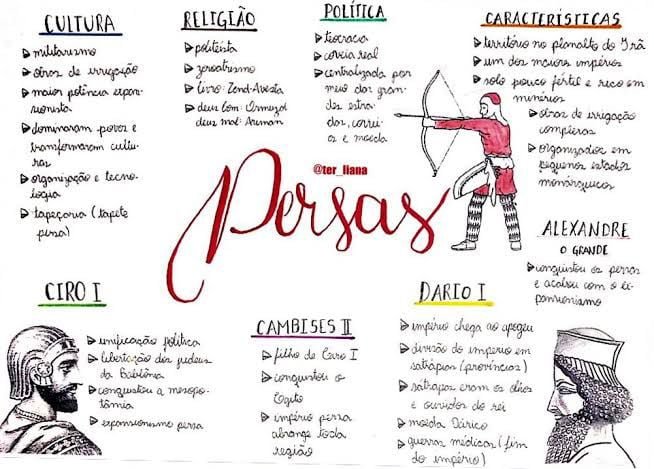 CULTURA
militarismo
obras de irrigação
maior potência expan-
sionista
dominaram povos e
transformaram cultu-
ras
organização e tecno-
logia
tapeçaria (tapete
persa)
RELIGIÃO
politeísta
zoroatrismo
livro: Zend-Avesta
deus bom: Ormuzd
deus mal: Ariman
POLÍTICA
teocracia
corveia real
centralizada por
meio das gran-
des estra-
das, correi-
os e moeda
CARACTERÍSTICAS
território no planalto do Irã
um dos maiores impérios
solo pouco fértil e rico em
minérios
obras de irrigação
complexas
organizados em
pequenos estados
monárquicos
@ter_liana
Persas
ALEXANDRE
O GRANDE
conquistou os persas
e acabou com o ex-
pansionismo
CIRO I
unificação política
libertação dos judeus
da Babilônia
conquistou a mesopo-
tâmia
expansionismo persa
CAMBISES II
filho de Ciro I
conquistou o
Egito
império persa
abrange toda
região
DARIO I
império chega ao apogeu
divisão do império em
satrápias (províncias)
satrapas eram os olhos
e ouvidos do rei
moeda Dárico
guerras médicas (fim
do império)